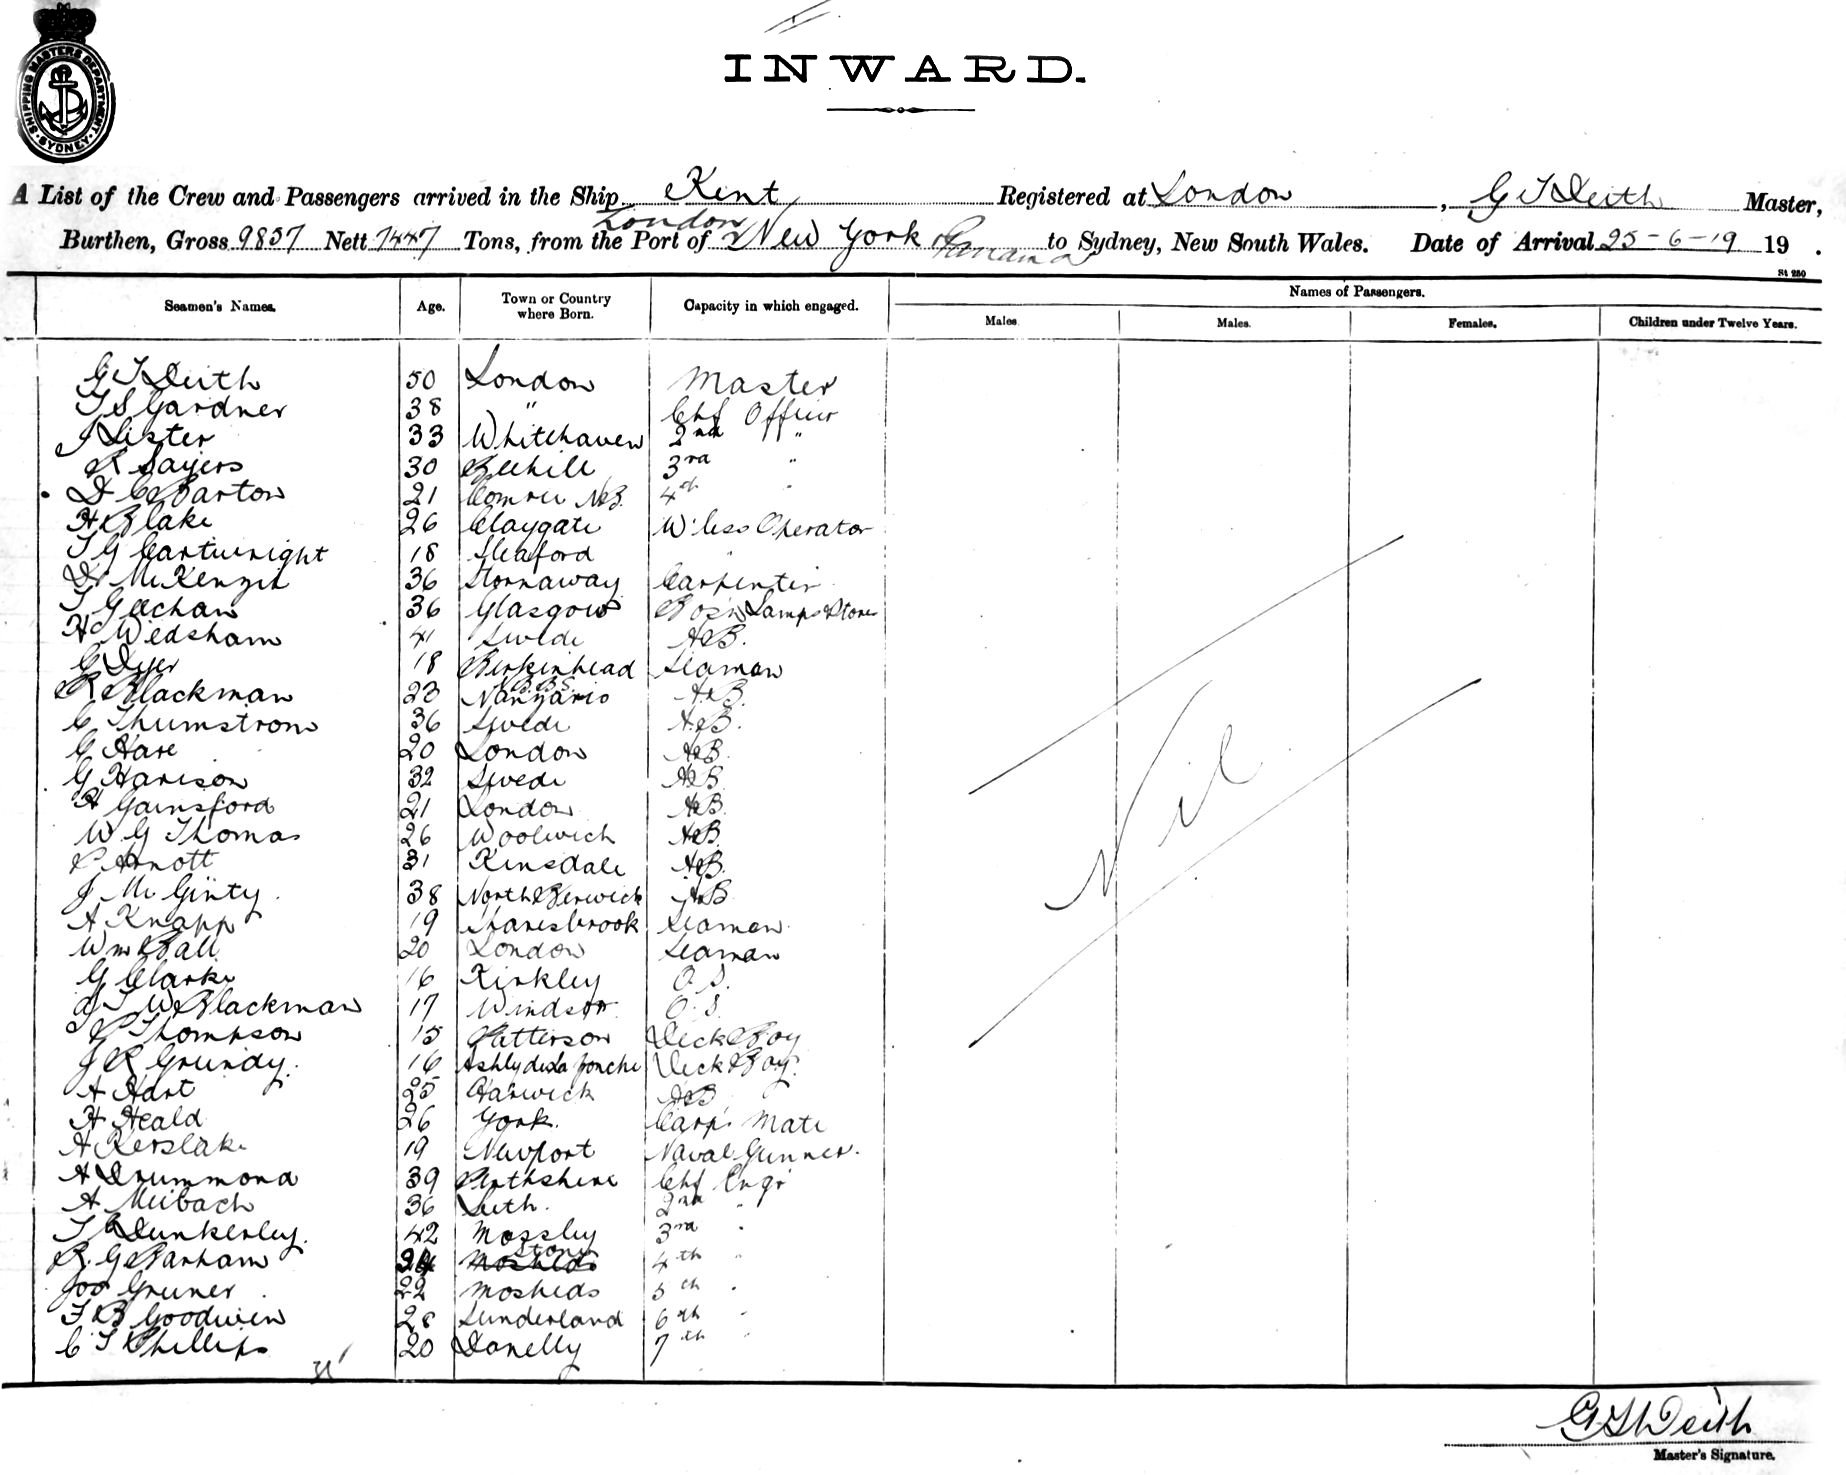 SHIPPING MASTERS DEPARTMENT · SYDNEY ·
INWARD.
A List of the Crew and Passengers arrived in the Ship Kent Registered at London, G T Deith Master,
Burthen, Gross 9857 Nett 7447 Tons, from the Port of London New York Panama to Sydney, New South Wales. Date of Arrival 25-6-19 19 .
St 250
Seamen's Names. Age. Town or Country where Born. Capacity in which engaged. Names of Passengers.
Males. Males. Females. Children under Twelve Years.
G T Deith 50 London Master
T S Gardner 38 " Chf Officer
J Lister 33 Whitehaven 2nd "
R Sayers 30 3rd "
D C Barton 21 Comrie N.B. 4th "
H Blake 26 Claygate W'less Operator
T G Cartwright 18 Sleaford "
D McKenzie 36 Stornaway Carpenter
T Geechan 36 Glasgow Bos'n Lamps & Stores
H Wedsham 41 Swede A.B.
G Dyer 18 Birkinhead Seaman
R Blackman 23 A.B.
C Thumstrom 36 Swede A.B.
G Hare 20 London A.B.
G Harison 32 Swede A.B.
H Gainsford 21 London A.B.
W G Thomas 26 Woolwich A.B.
P Arnott 31 Kinsdale A.B.
J McGinty. 38 North Berwick A.B.
A Knapp 19 Snaresbrook Seaman
Wm Ball 20 London Seaman
G Clarke 16 Kirkley O.S.
T W Blackman 17 Windsor O.S.
P Thompson 15 Patterson Deck Boy
J R Grundy. 16 Ashly de la Zonche Deck Boy.
A Hart 25 Harwick A.B
H Heald 26 York. Carp's Mate
A Kerslake 19 Newport Naval Gunner.
A Drummond 39 Perthshire Chf Engr
A Meibach 36 Leith. 2nd "
T Dunkerley. 42 Mossley 3rd "
R. G Barham 24 Stone 4th "
Jos Gruner 22 Mosheds 5th "
T B Goodwin 28 Sunderland 6th "
C T Phillips 20 Danelly 7th "
Nil
G T Deith
Master's Signature.